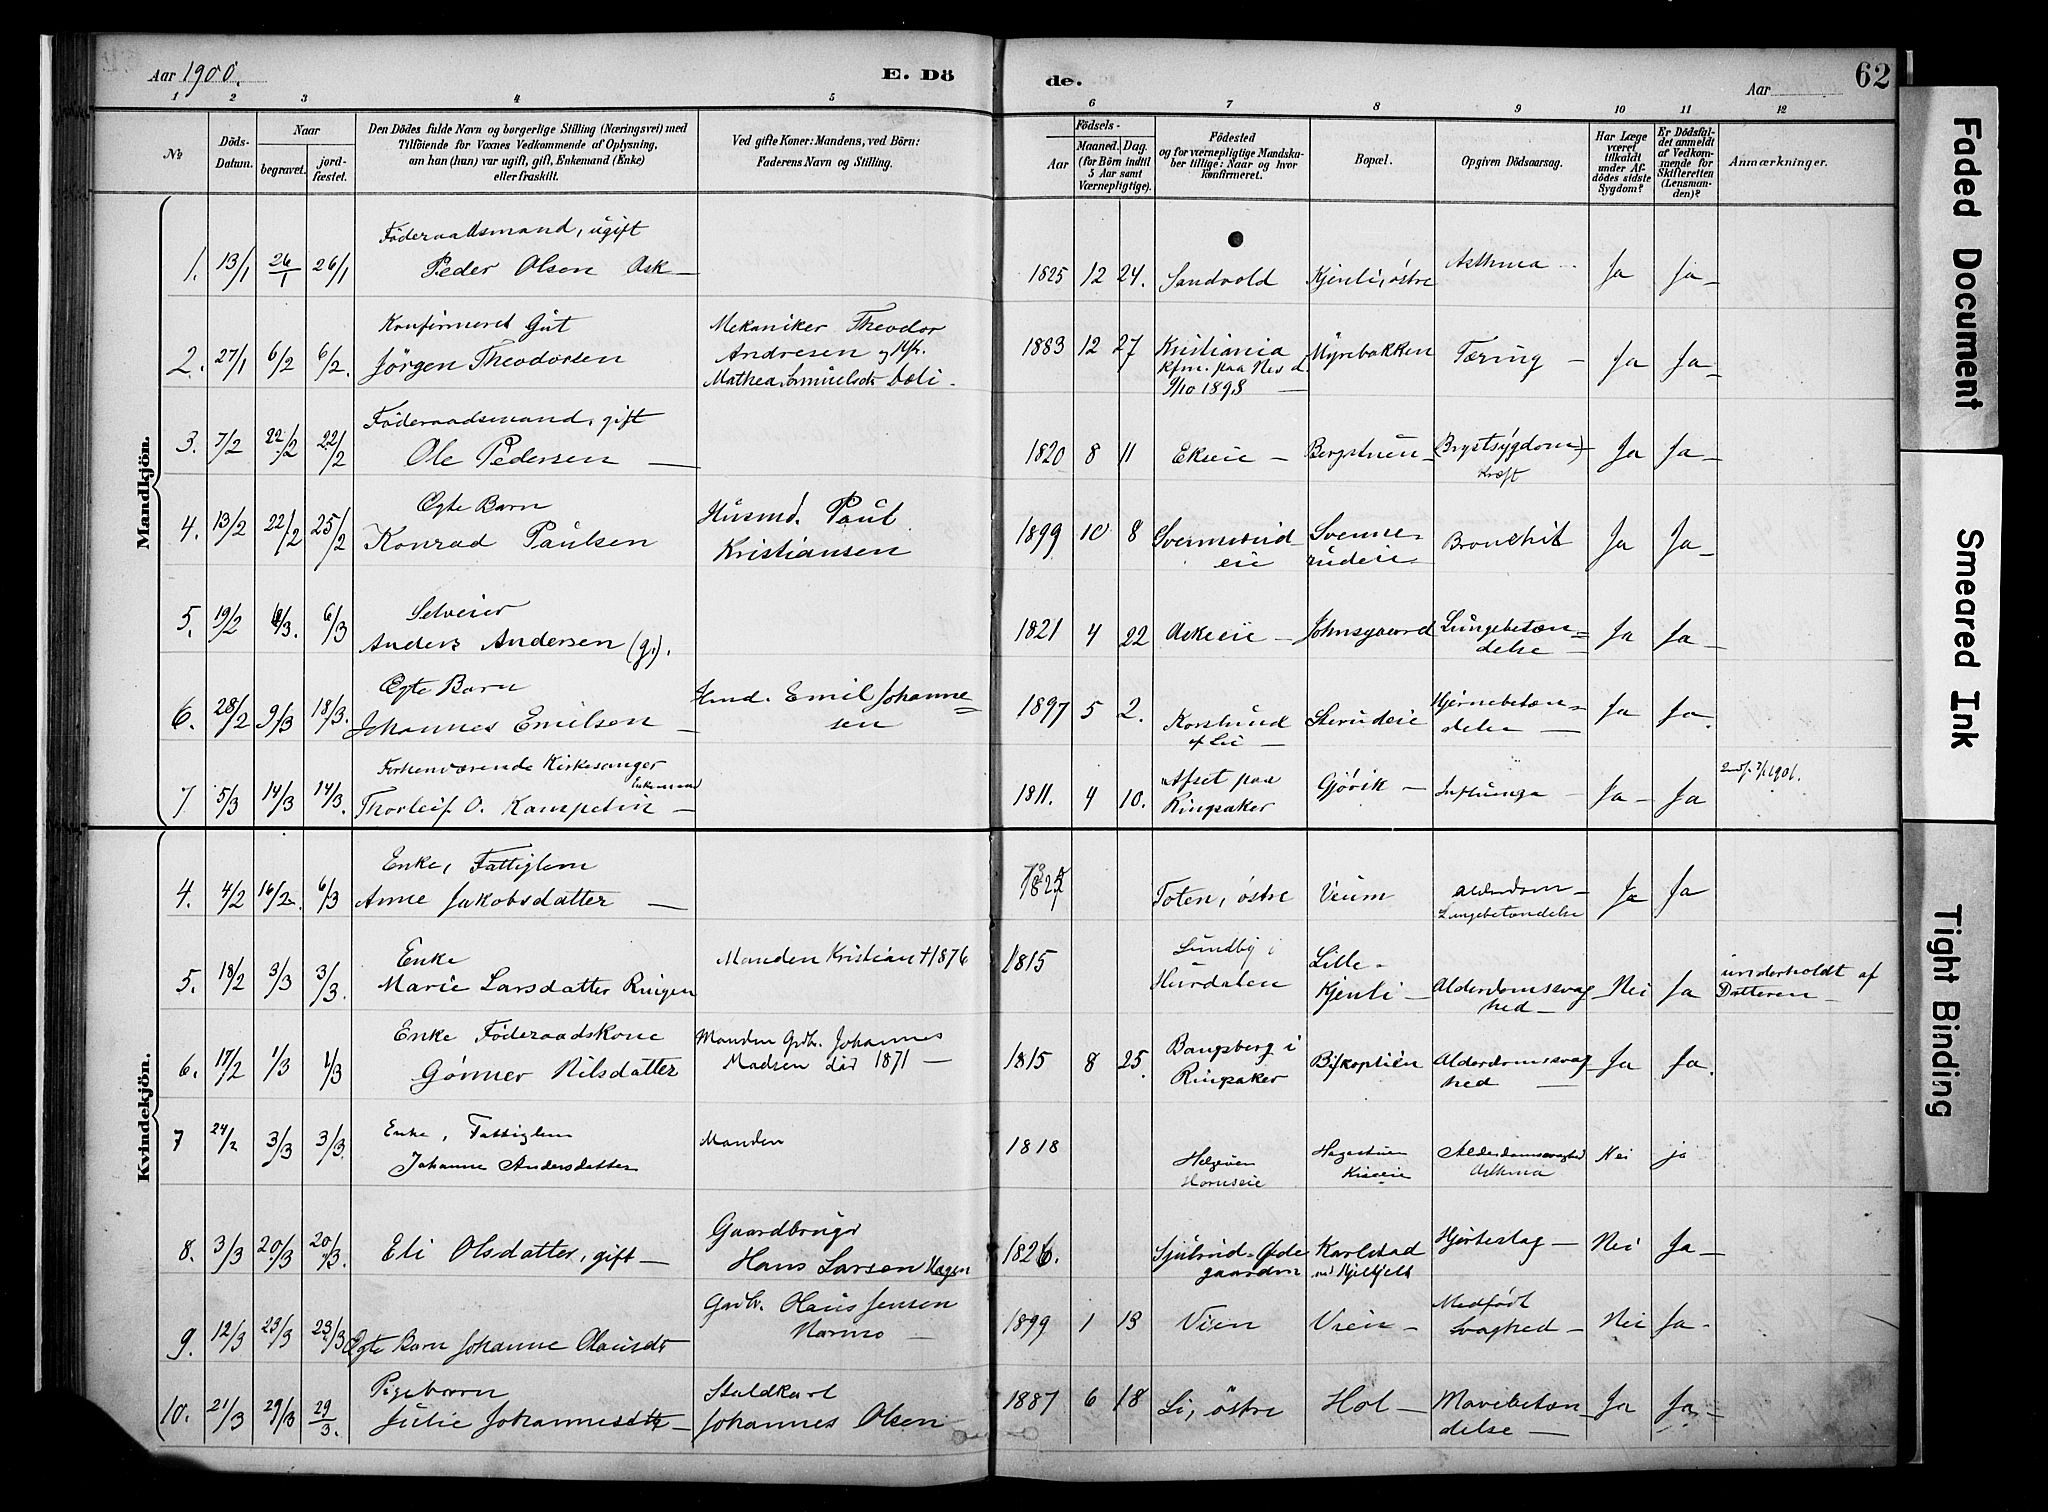 Aar 1900.
E. Dö
de.
Aar
62
1 2 3 4 5 6 7 8 9 10 11 12
№
Döds-Datum.
Naar
begravet.
jord-fæstet.
Den Dödes fulde Navn og borgerlige Stilling (Næringsvei) med
Tilföiende for Voxnes Vedkommende af Oplysning,
om han (hun) var ugift, gift, Enkemand (Enke)
eller fraskilt.
Ved gifte Koner: Mandens, ved Börn:
Faderens Navn og Stilling.
Födsels-
Aar
Maaned. Dag.
(for Börn indtil
5 Aar samt
Værnepligtige).
Födested
og for værnepligtige Mandska-
ber tillige: Naar og hvor
konfirmeret.
Bopæl.
Opgiven Dödsaarsag.
Har Læge
været
tilkaldt
under Af-
dödes sidste
Sygdom?
Er Dödsfal-
det anmeldt
af Vedkom-
mende for
Skifteretten
(Lensman-
den)?
Anmærkninger.
Mandkjön.
Föderaadsmand, ugift
1. 13/1 26/1 26/1 Peder Olsen Ask 1825 12 24. Sandvold Kjenli, østre Asthma Ja Ja
Konfirmeret Gut
Mekaniker Theodor
2. 27/1 6/2 6/2. Jörgen Theodorsen Andresen og Hst. 1883 12 27 Kristiania Myrebakken Tæring Ja Ja
Mathea Samuelsdr Dæli.
Kfm. paa Nes d.
9/10 1898
Föderaadsmand, gift
3. 7/2 22/2 22/2 Ole Pedersen 1820 8 11 Ekeie Bergstuen (Brystsygdom) Ja Ja
Kræft
Egte Barn
Husmd. Paul
4. 13/2 22/2 25/2 Konrad Paulsen Kristiansen 1899 10 8 Svennerud- Svenne- Bronchit Ja Ja
eie rudeie
Selveier
5. 19/2 6/3. 6/3 Anders Andersen (g.). 1821 4 22 Askeie Johnsgaard Lungebetæn= Ja Ja
delse
Egte Barn
Hmd. Emil Johanne=
6. 28/2 9/3 18/3. Johannes Emilsen sen 1897 5 2. Korslund Sterudeie Hjernebetæn= Ja Ja.
af Lie delse
Forhenværende Kirkesanger
Enkemand
7 5/3 14/3 14/3. Thorleif O. 1811. 4 10. Afset paa Gjövik Influenza Ja Ja
Ringsaker
Kvindekjön.
Enke, Fattiglem
4. 4/2 16/2. 6/3 Anne Jakobsdatter Toten, østre Vium Alderdom Ja Ja
Lungebetændelse
Enke
Manden Kristian † 1876
5. 18/2 3/3 3/3. Marie Larsdatter Ringen 1815 Lundby i Lille- Alderdomssvag Nei Ja underholdt af
Hurdalen Kjenli hed Datteren
Enke Föderaadskone
Manden Gdbr. Johannes
6. 17/2 1/3 1/3 Gönner Nilsdatter Madsen död 1871 1815 8 25. Bangsberg i Alderdomssvag Ja Ja.
Ringsaker hed
Enke, Fattiglem
7 24/2 3/3 3/3. Johanne Andersdatter Manden 1818 Helgeien Hagestuen Alderdomssvaghed Nei ja
Horneie Kiseeie Asthma
Gaardbruger
8. 3/3 20/3 20/3. Eli Olsdatter, gift Hans Larsen Hagen 1826. Sjulsrud-Øde Karlstad Hjerteslag Nei Ja
gaarden
Gdbr. Olaus Jensen
9. 12/3 23/3 23/3 Egte Barn Johanne Olausdr Narmo 1899 1 13 Vien Vien Medfødt Nei Ja
Svaghed
Pigebarn
Staldkarl
10. 21/3 29/3 29/3. Julie Johannesdtr Johannes Olsen 1887 6 18 Li, östre Hol Mavebetæn Ja Ja
delse
Faded Document
Smeared Ink
Tight Binding